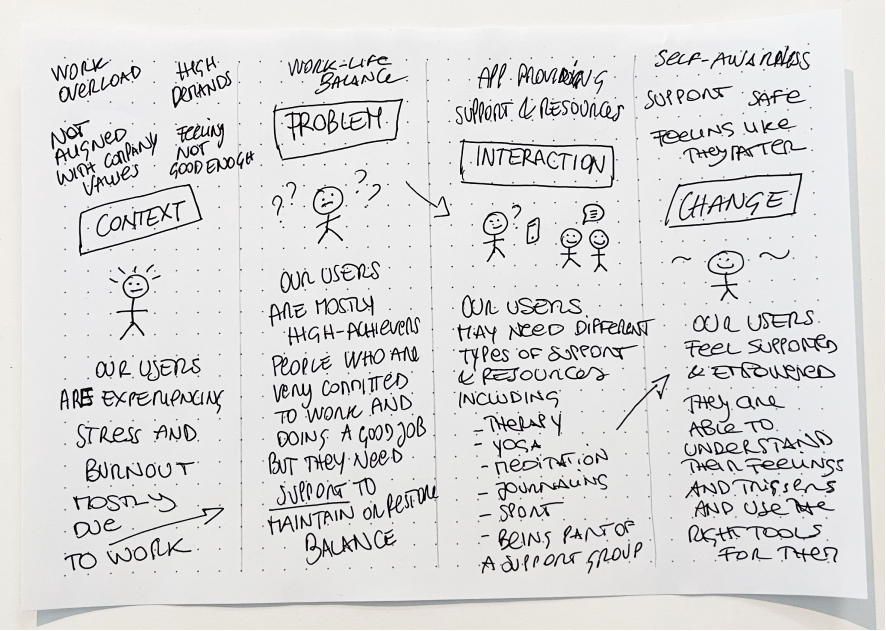 WORK
OVERLOAD
HIGH
DEMANDS
NOT
ALIGNED
WITH COMPANY
VALUES
FEELING
NOT
GOOD ENOGH
CONTEXT
OUR USERS
ARE EXPERIENCING
STRESS AND
BURNOUT
MOSTLY
DUE
TO WORK
WORK-LIFE
BALANCE
PROBLEM
? ? ? ?
OUR USERS
ARE MOSTLY
HIGH-ACHIEVERS
PEOPLE WHO ARE
VERY COMMITTED
TO WORK AND
DOING A GOOD JOB
BUT THEY NEED
SUPPORT TO
MAINTAIN OR RESTORE
BALANCE
APP PROVIDING
SUPPORT & RESOURCES
INTERACTION
?
OUR USERS
MAY NEED DIFFERENT
TYPES OF SUPPORT
& RESOURCES
INCLUDING
- THERAPY
- YOGA
- MEDITATION
- JOURNALING
- SPORT
- BEING PART OF
A SUPPORT GROUP
SELF-AWARNESS
SUPPORT SAFE
FEELING LIKE
THEY MATTER
CHANGE
OUR USERS
FEEL SUPPORTED
& EMPOWERED
THEY ARE
ABLE TO
UNDERSTAND
THEIR FEELINGS
AND TRIGGERS
AND USE THE
RIGHT TOOLS
FOR THEM